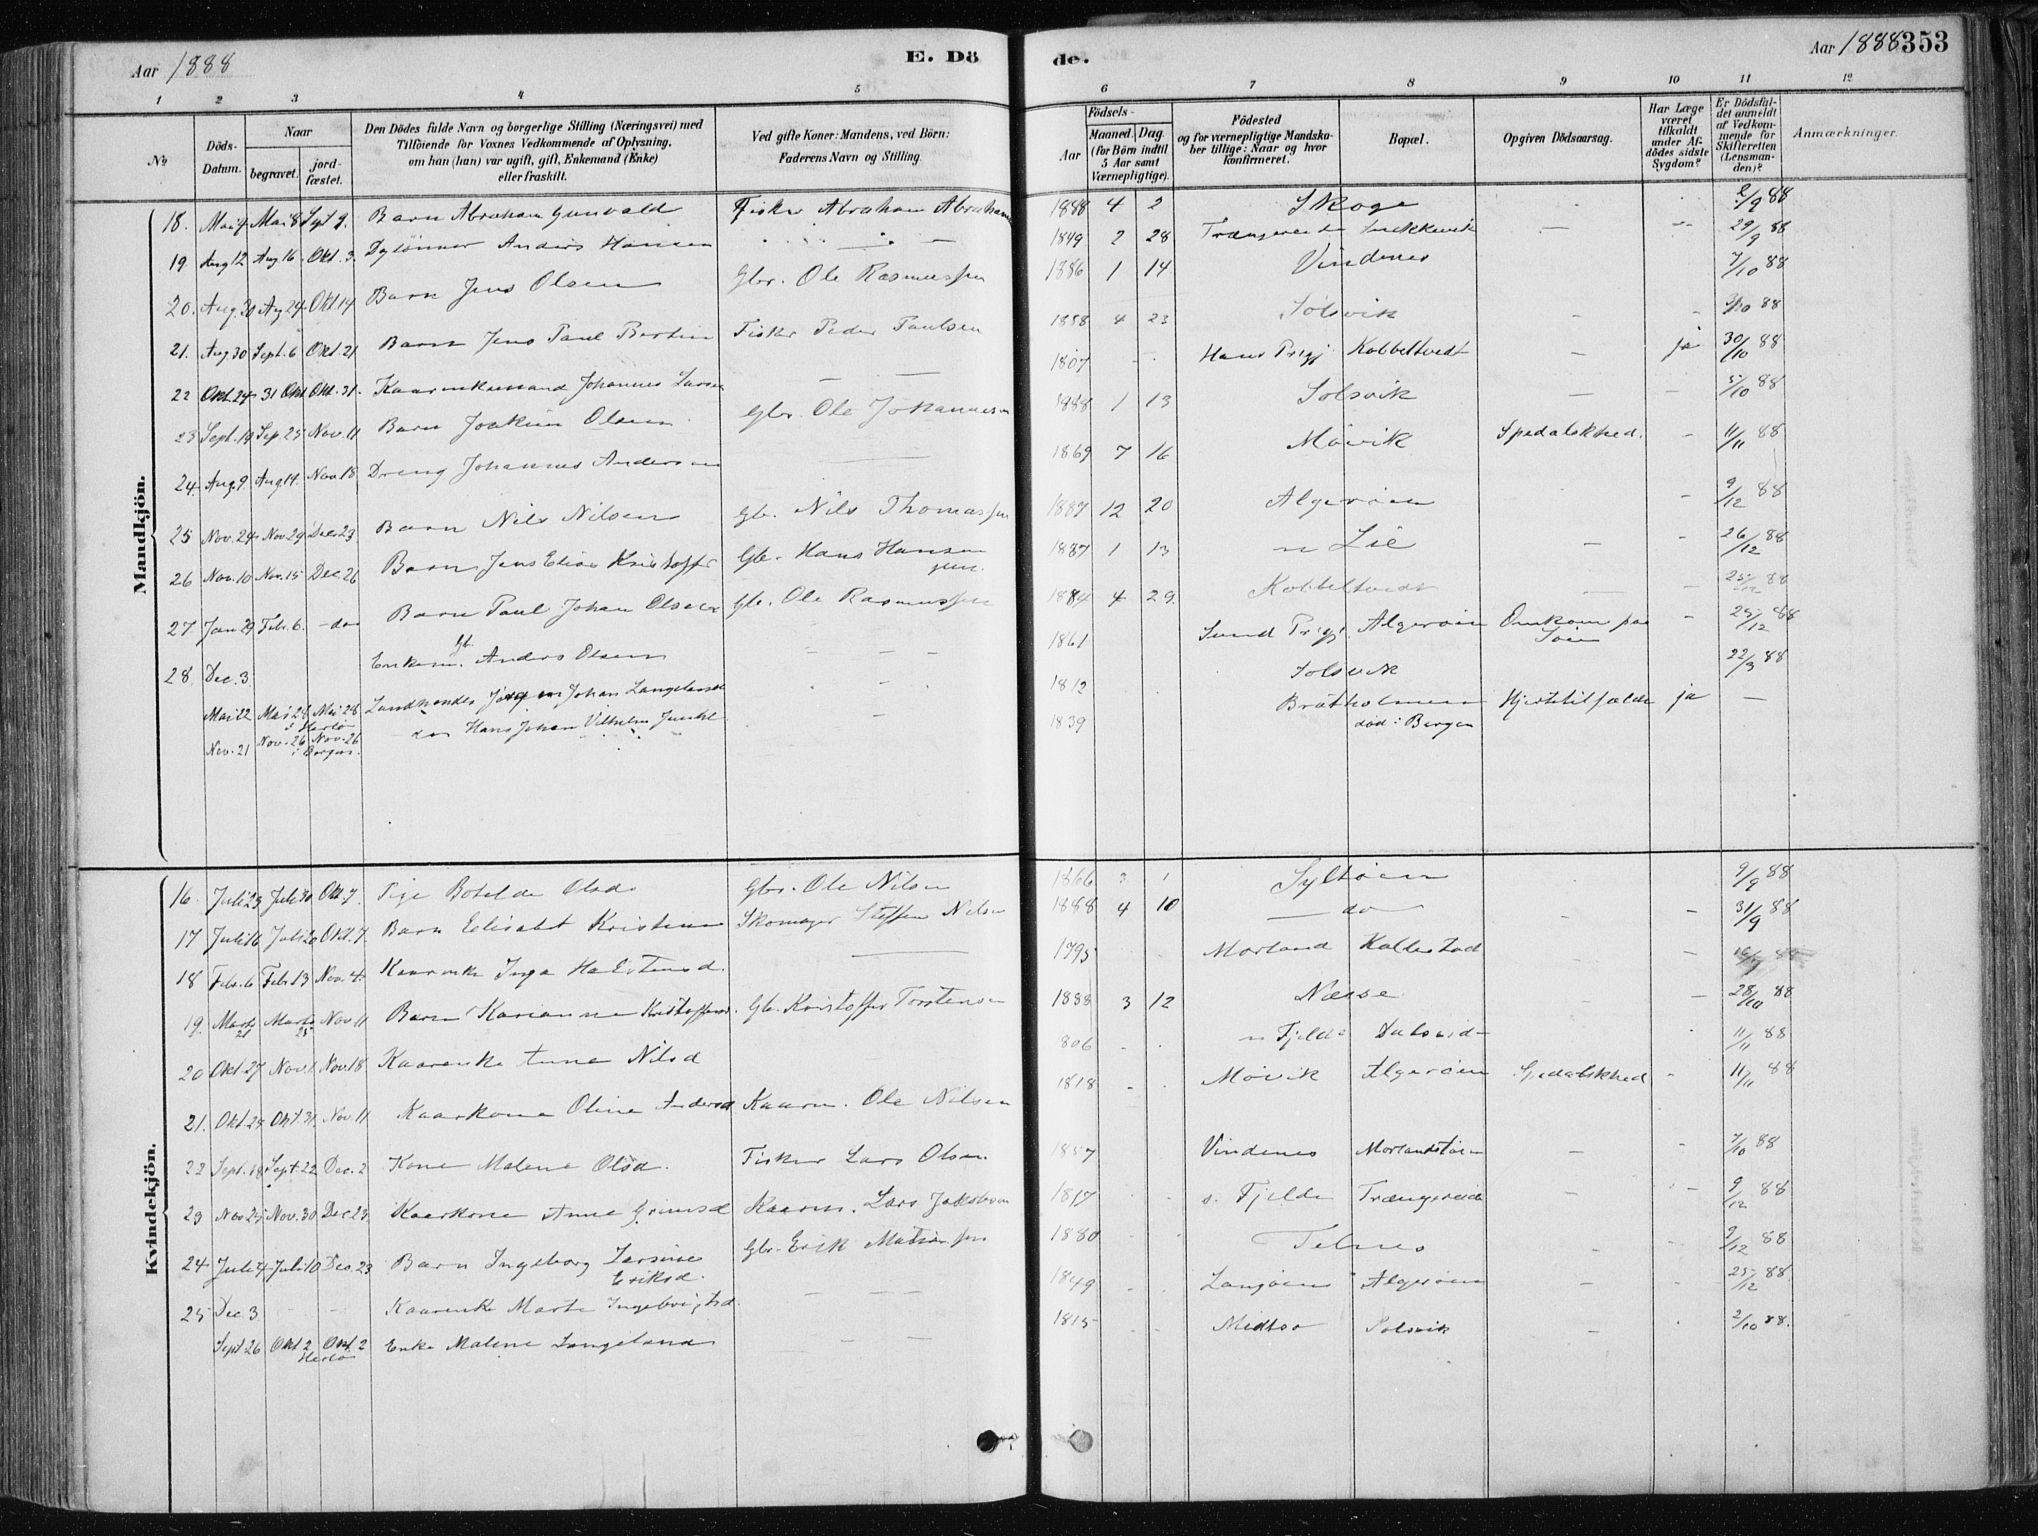 Aar 1888
E. Dö
de.
Aar 1888 353
1 2 3 4 5 6 7 8 9 10 11 12
No
Döds-Datum.
Naar begravet. jord-fæstet.
Den Dödes fulde Navn og borgerlige Stilling (Næringsvei) med Tilföiende for Voxnes Vedkommende af Oplysning, om han (hun) var ugift, gift, Enkemand (Enke) eller fraskilt.
Ved gifte Koner: Mandens, ved Börn: Faderens Navn og Stilling.
Födsels-
Aar Maaned. Dag. (for Börn indtil 5 Aar samt Værnepligtige).
Födested og for værnepligtige Mandska-ber tillige: Naar og hvor konfirmeret.
Bopæl.
Opgiven Dödsaarsag.
Har Læge været tilkaldt under Af-dödes sidste Sygdom?
Er Dödsfal-det anmeldt af Vedkom-mende for Skifteretten (Lensman-den)?
Anmærkninger.
Mandkjön.
18. Mai 4 Mai 8 Sept 9. Barn Abraham Gunvald Fisker Abraham Abrahams 1888 4 2 Skoge 2/9 88
19 Aug 12 Aug 16 Okt. 3. Anders Hansen 1849 2 28 Trængereid 29/9 88
20. Aug. 20 Aug 24 Okt 14 Barn Jens Olsen Gbr. Ole Rasmussen 1886 1 14 Vindenes 7/10 88
21. Aug 30 Sept. 6 Okt. 21 Barn Jens Paul Bertin Fisker Peder Paulsen 1888 4 23 Solsvik 88
22 Okt. 24 31 Okt Okt. 31. Kaarenkemand Johannes Larsen 1807 Kobbeltvedt ja 30/10 88
23 Sept. 19 Sep. 25 Nov. 11 Barn Joakim Olsen Gbr. Ole Johannesen 1888 1 13 Solsvik 5/10 88
24. Aug. 9 Aug 14. Nov 18 Dreng Johannes Andersen 1869 7 16 Møvik Spedalskhed. 11/11 88
25 Nov. 24 Nov. 29 Dec 23 Barn Nils Nilsen Gb. Nils Thomassen 1887 12 20 Algerøen 9/12 88
26 Nov. 10 Nov. 15 Dec. 26 Barn Jens Elias Kristoffer Gb. Hans Hansen 1887 1 13 n Lie 26/12 88
27 Jan 29 Feb. 6. do Barn Paul Johan Olsen Gb. Ole Rasmussen 1884 4 29. Kobbeltvedt 25/12 88
28. Dec. 3 Gb. Enkem. Anders Olsen 1861 Sund Prgj. Algerøen Omkom paa Søen 25/12 88
Mai 22 Mai 28 Mai 28 i Herlø Landhandler Johan Langeland 1812 Solsvik 22/3 88
Nov. 21 Nov. 26 Nov. 26 i Bergen. do Hans Johan Vilhelm 1839 Bratholmen død i Bergen Hjertetilfælde ja
Kvindekjön.
16. Juli 23 Juli 30 Okt. 7. Pige Botilde Olsd. Gbr. Ole Nilsen 1866 3 1 Syltøen 9/9 88
17 Juli 16 Juli 20 Okt. 7. Barn Elisabet Kristine Skomager Steffen Nilsen 1888 4 10 do 31/9 88
18 Feb. 6 Feb. 13 Nov. 4. Kaarenke Inga 1795 Morland Kallestad 88
19. Marts 21 Marts 25 Nov. 11 Barn Karianne Kristoffersd. Gb. Kristoffer Torstensen 1888 3 12 Næsse 28/10 88
20 Okt. 27 Nov. 1 Nov. 18 Kaarenke Anna Nilsd 806 n Fjeld Dalseid 11/11 88
21. Okt. 25 Okt. 31 Nov. 11 Kaarkone Oline Andersd Kaarm. Ole Nilsen 1818 Møvik Algerøen Spedalskhed 11/11 88
22 Sept. 18 Sept. 22 Dec. 2 Kone Malene Olsd. Fisker Lars Olsen. 1857 Vindenes 7/10 88
23 Nov 25 Nov. 30 Dec 23 Kaarkone Anna Grimsd Kaarm. Lars Jakobsen 1817 s. Fjelde Trængereid 9/12 88
24 Juli 4 Juli 10 Dec. 23 Barn Ingeborg Larsine Eriksd. Gbr. Erik 1880 Telnes 9/12 88
25 Dec. 3 Kaarenke Marta Ingebrigtsd. 1849 Langøen Algerøen 25/12 88.
Sept. 26 Okt 2 Okt. 2 Herlø Enke Malene Langeland 1815 Solsvik 2/10 88.